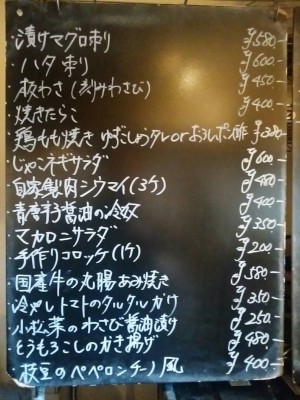 ・漬けマグロ刺 ¥580-
・ハタ刺り ¥600-
・板わさ(刻みわさび) ¥450-
・焼きたらこ ¥400-
・鶏もも焼き ゆずこしょうタレorおろしポン酢
・じゃこネギサラダ ¥600-
・自家製肉シウマイ(3ケ) ¥480-
・青唐辛子醤油の冷奴 ¥400-
・マカロニサラダ ¥350-
・手作りコロッケ(1ケ) ¥200-
・国産牛の丸腸あみ焼き ¥580-
・冷やしトマトのタルタルがけ ¥350-
・小松菜のわさび醤油漬け ¥250-
・とうもろこしのかき揚げ ¥480-
・枝豆のペペロンチーノ風 ¥400-